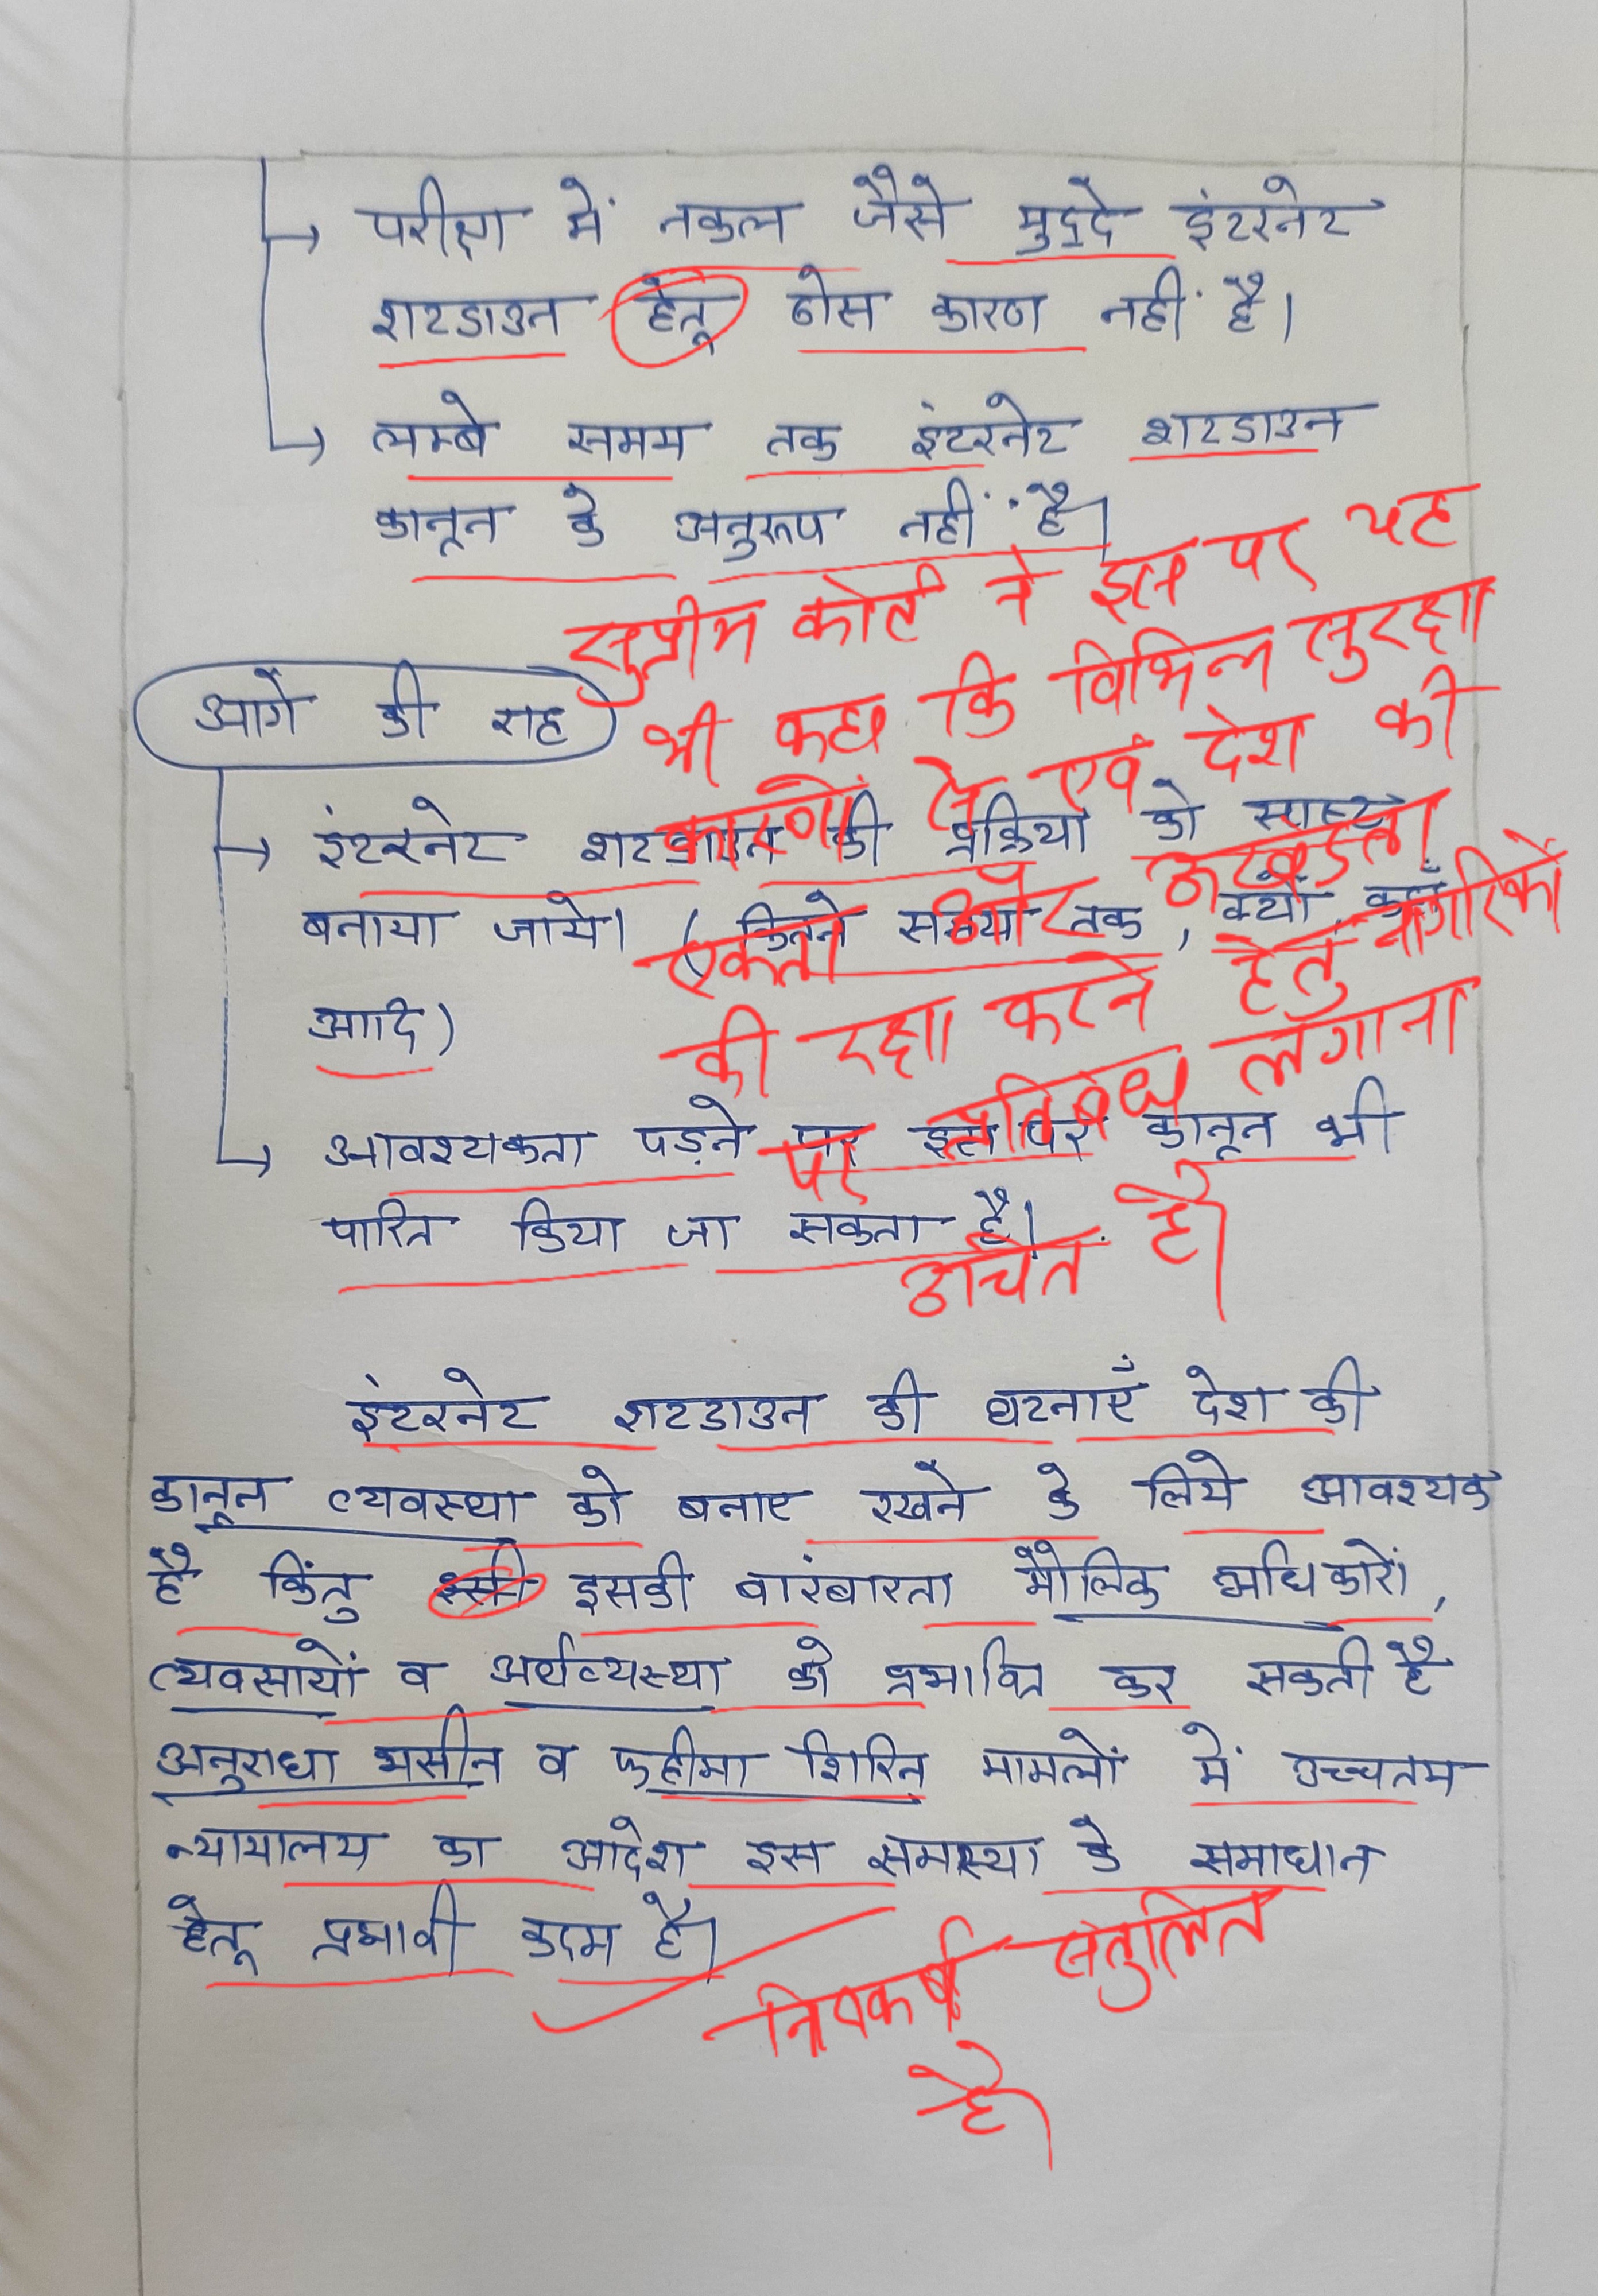 परीक्षा में नकल जैसे मुद्दे इंटरनेट
शटडाउन हेतू ठोस कारण नहीं है।
लम्बे समय तक इंटरनेट शटडाउन
कानून के अनुरूप नहीं है।
सुप्रीम कोर्ट ने इस पर यह
भी कहा कि विभिन्न सुरक्षा
कारणों से एवं देश की
एकता और अखंडता
की रक्षा करने हेतु नागरिकों
पर प्रतिबंध लगाना
उचित है।
आगे की राह
इंटरनेट शटडाउन की प्रक्रिया को स्पष्ट
बनाया जाये। (कितने समय तक, क्यों,
आदि)
आवश्यकता पड़ने पर इस पर कानून भी
पारित किया जा सकता है।
इंटरनेट शटडाउन की घटनाएँ देश की
कानून व्यवस्था को बनाए रखने के लिये आवश्यक
है किंतु इसकी बारंबारता मौलिक अधिकारों,
व्यवसायों व अर्थव्यस्था को प्रभावित कर सकती है
अनुराधा भसीन व फहीमा शिरिन मामलों में उच्चतम
न्यायालय का आदेश इस समस्या के समाधान
हेतू प्रभावी कदम है।
निष्कर्ष संतुलित
है।